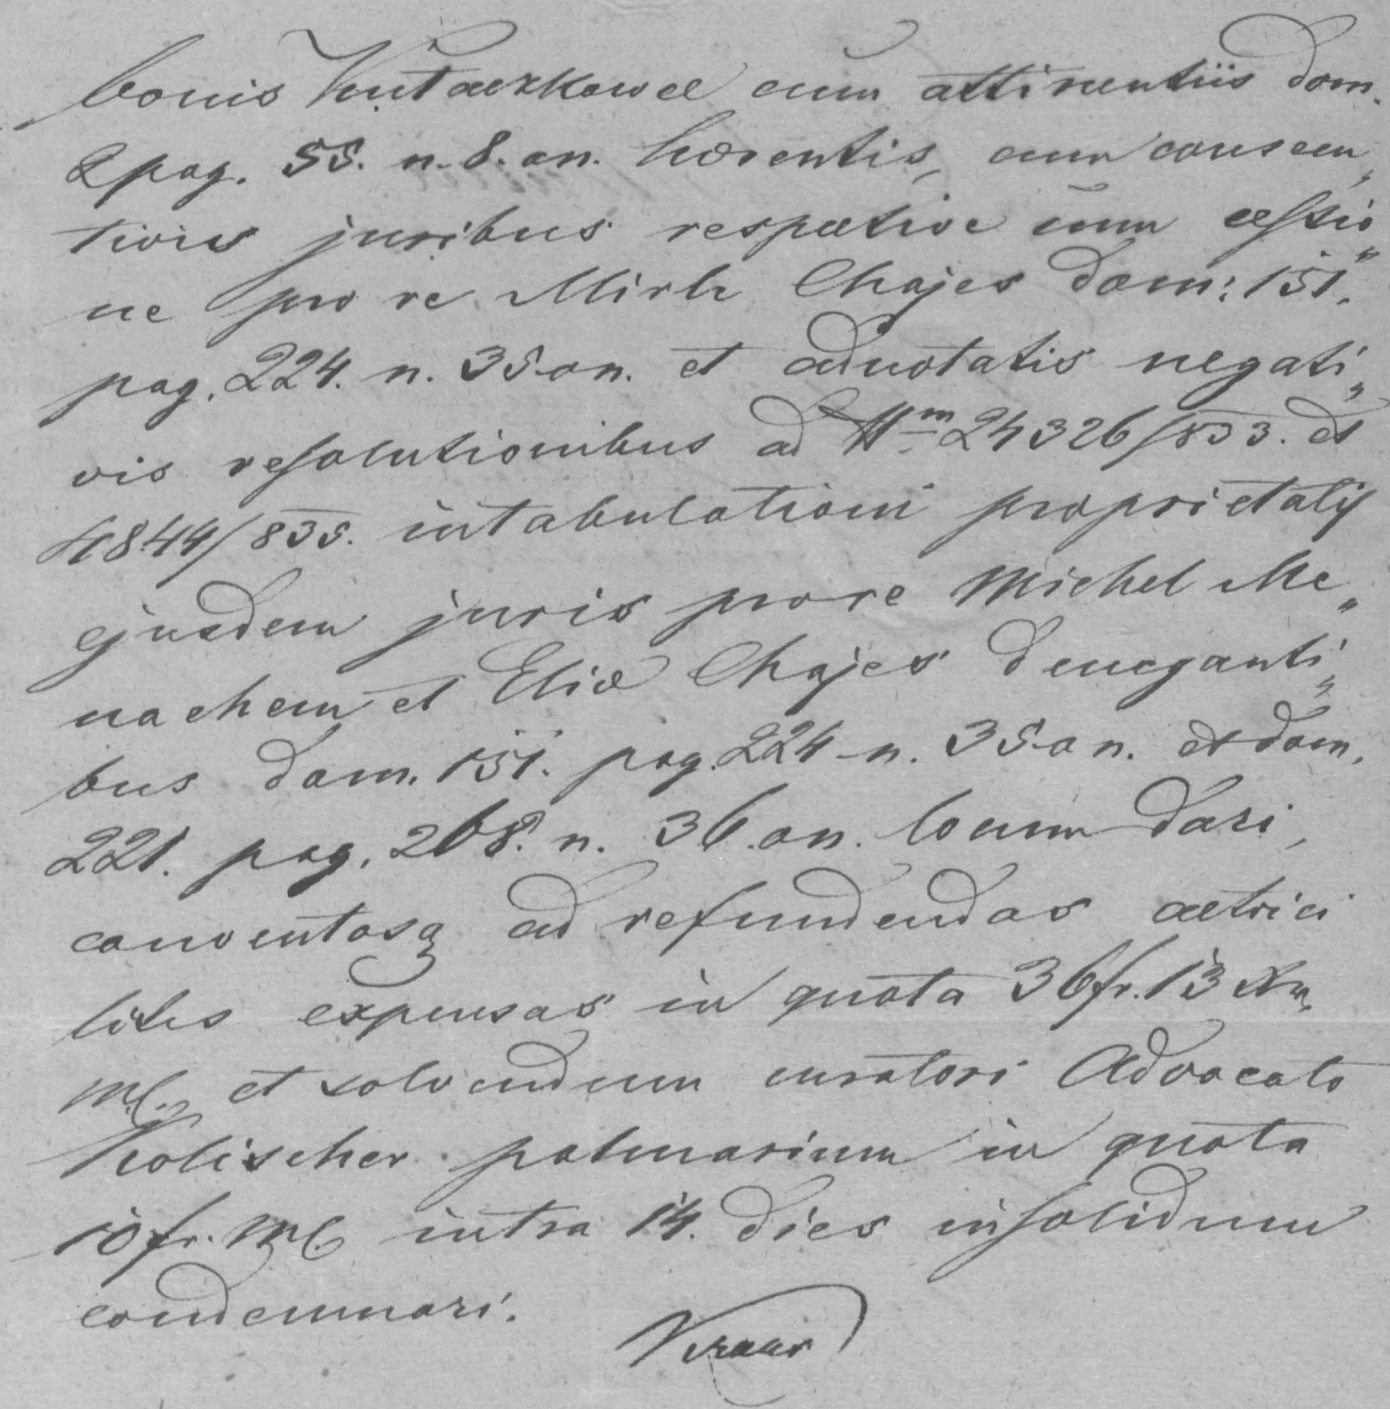 bonis Kutaczkowce cum attinentiis dom.
2 pag. 55. n. 8. on. haerentis, cum consecu„
tivis juribus respective cum cessio„
ne pro re Mirl Chajes dom: 151.
pag. 224. n. 35 on. et adnotatis negati„
vis resolutionibus ad Nm 24326/833. et
4844/835. intabulationi proprietatis
ejusdem juris pro re Michel Me„
nachem et Eliae Chajes deneganti„
bus dom. 151. pag. 224 n. 35 on. et dom.
221. pag. 268. n. 36. on. locum dari,
conventosq ad refundendas actrici
litis expensas in quota 36 fr. 13 Xr.
M.C. et solvendum curatori Advocato
Kolischer palmarium in quota
10 fr. M.C. intra 14. dies insolidum
condemnari.
Kraus